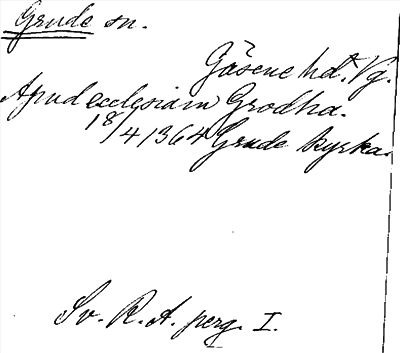 Grude sn.
Gäsene hd. Vg.
Apud ecclesiam Grodha.
18/4 1364 Grude kyrka.
Sv. R. A. perg. I.